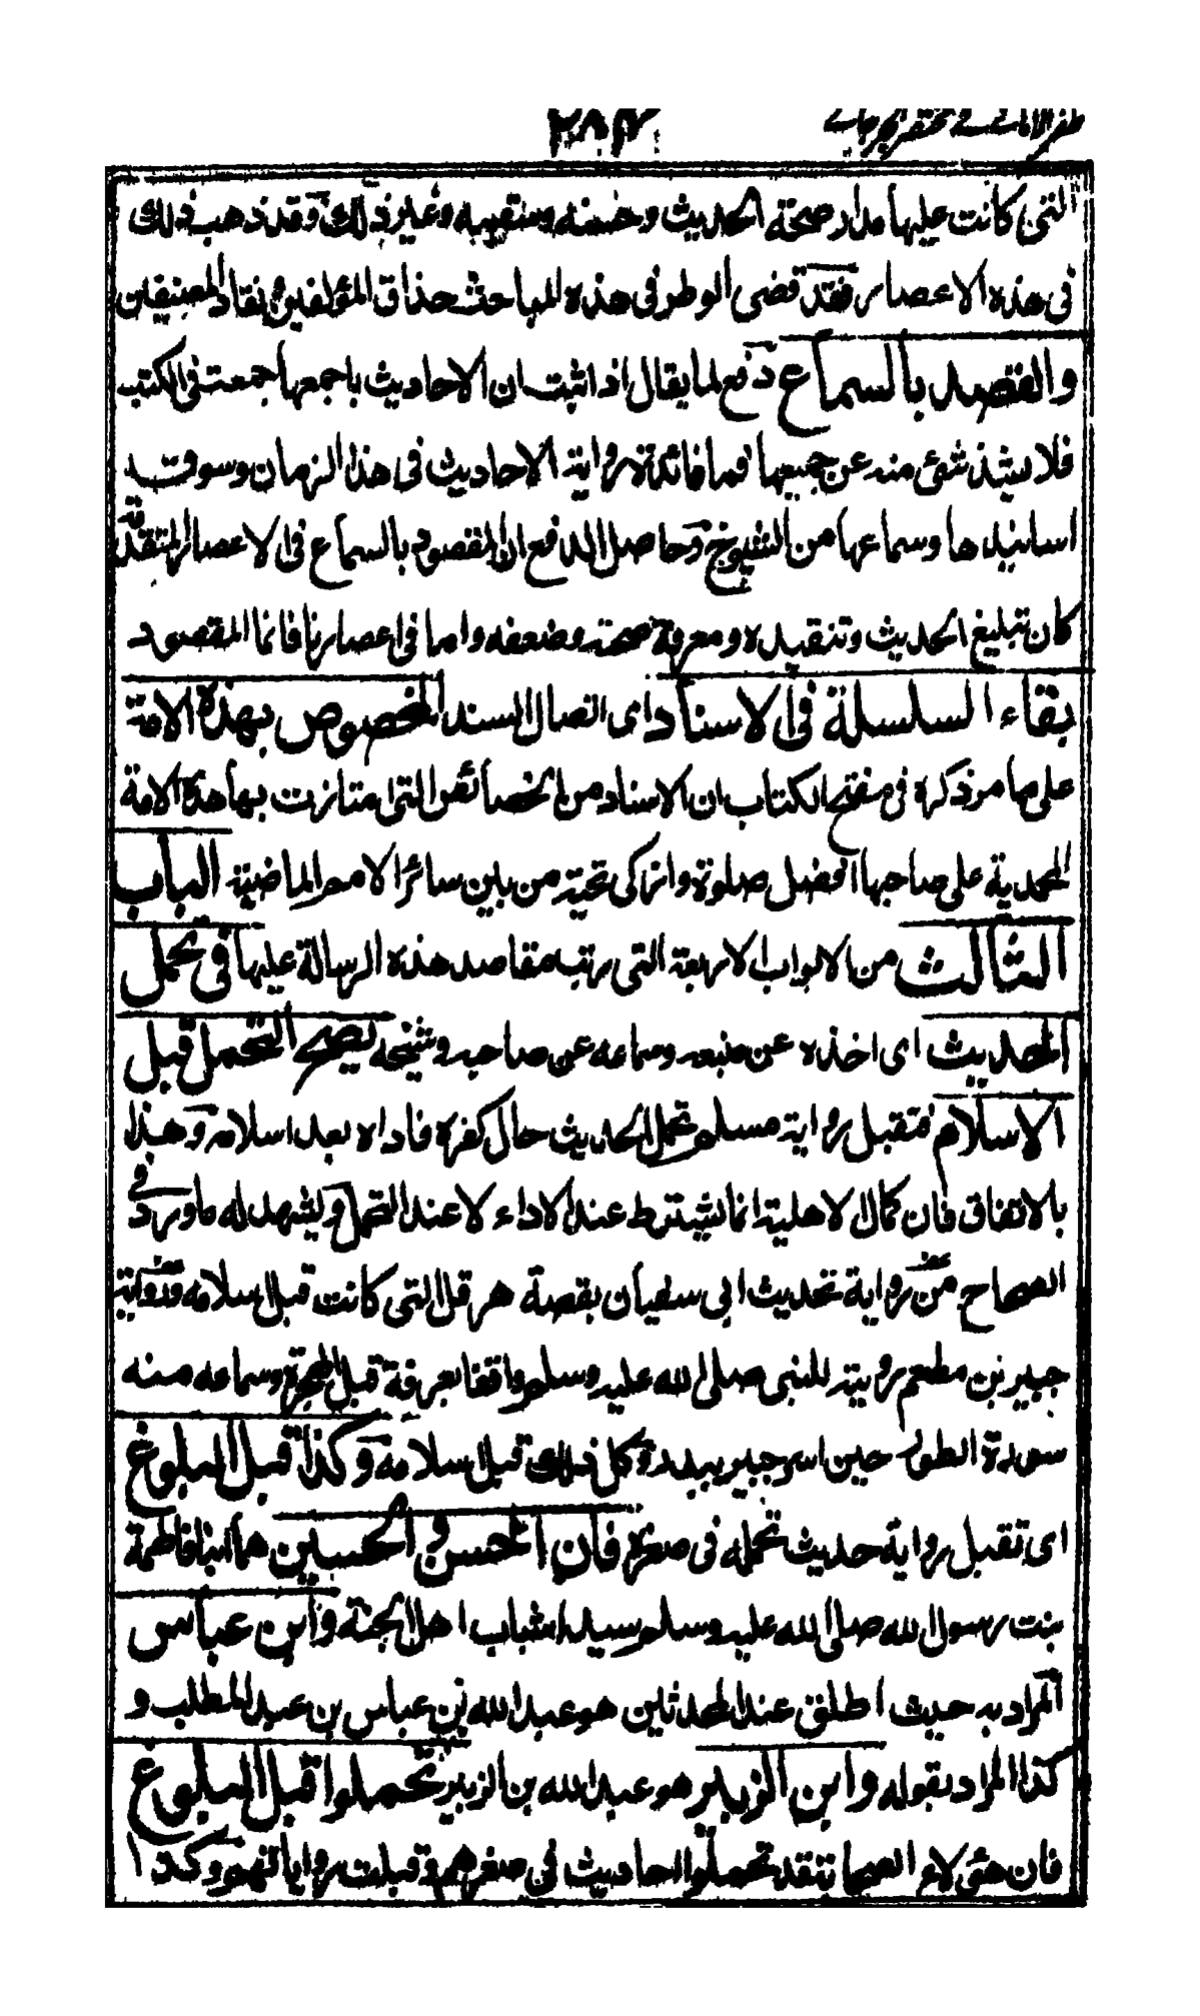 ظفر الامانے فے مختصر الجرجانے ٢٨٤
التى كانت عليها مدار صحة الحديث وحسنه وسقيمه وغير ذلك وقد ذهب ذلك
فى هذه الاعصار فقد قضى الوطر فى هذه المباحث حذاق المؤلفين ونقاد المصنفين
والقصد بالسماع دفع لما يقال اذا ثبت ان الاحاديث باجمعها جمعت فى الكتب
فلا يشذ شئ منه عن جميعها فما فائدة رواية الاحاديث فى هذا الزمان وسوق
اسانيدها وسماعها من الشيوخ وحاصل الدفع ان المقصود بالسماع فى الاعصار المتقدمة
كان تبليغ الحديث وتنقيده ومعرفة صحته وضعفه واما فى اعصارنا فانما المقصود
بقاء السلسلة فى الاسناد اى اتصال السند المخصوص بهذه الامة
على ما مر ذكره فى مفتح الكتاب ان الاسناد من الخصائص التى امتازت بها هذه الامة
المحمدية على صاحبها افضل صلوة وازكى تحية من بين سائر الامم الماضية الباب
الثالث من الابواب الاربعة التى رتبت مقاصد هذه الرسالة عليها فى تحمل
الحديث اى اخذه عن منبعه وسماعه عن صاحبه وشيخه يصح التحمل قبل
الاسلام فتقبل رواية مسلم تحمل الحديث حال كفره فاداه بعد اسلامه وهذا
بالاتفاق فان كمال الاهلية انما يشترط عند الاداء لا عند التحمل ويشهد له ما ورد فى
الصحاح من رواية تحديث ابى سفيان بقصة هرقل التى كانت قبل اسلامه ورواية
جبير بن مطعم رويته للنبى صلى الله عليه وسلم واقفا بعرفة قبل الهجرة وسماعه منه
سورة الطور حين اسر جبير ببدر وكل ذلك قبل اسلامه وكذا قبل البلوغ
اى تقبل رواية حديث تحمله فى صغره فان الحسن والحسين هما ابنا فاطمة
بنت رسول الله صلى الله عليه وسلم سيدا شباب اهل الجنة وابن عباس
المراد به حيث اطلق عند المحدثين هو عبد الله بن عباس بن عبد المطلب و
كذا المراد بقوله وابن الزبير هو عبد الله بن الزبير تحملوا قبل البلوغ
فان هؤلاء الصحابة قد تحملوا احاديث فى صغرهم وقبلت رواياتهم وكذا